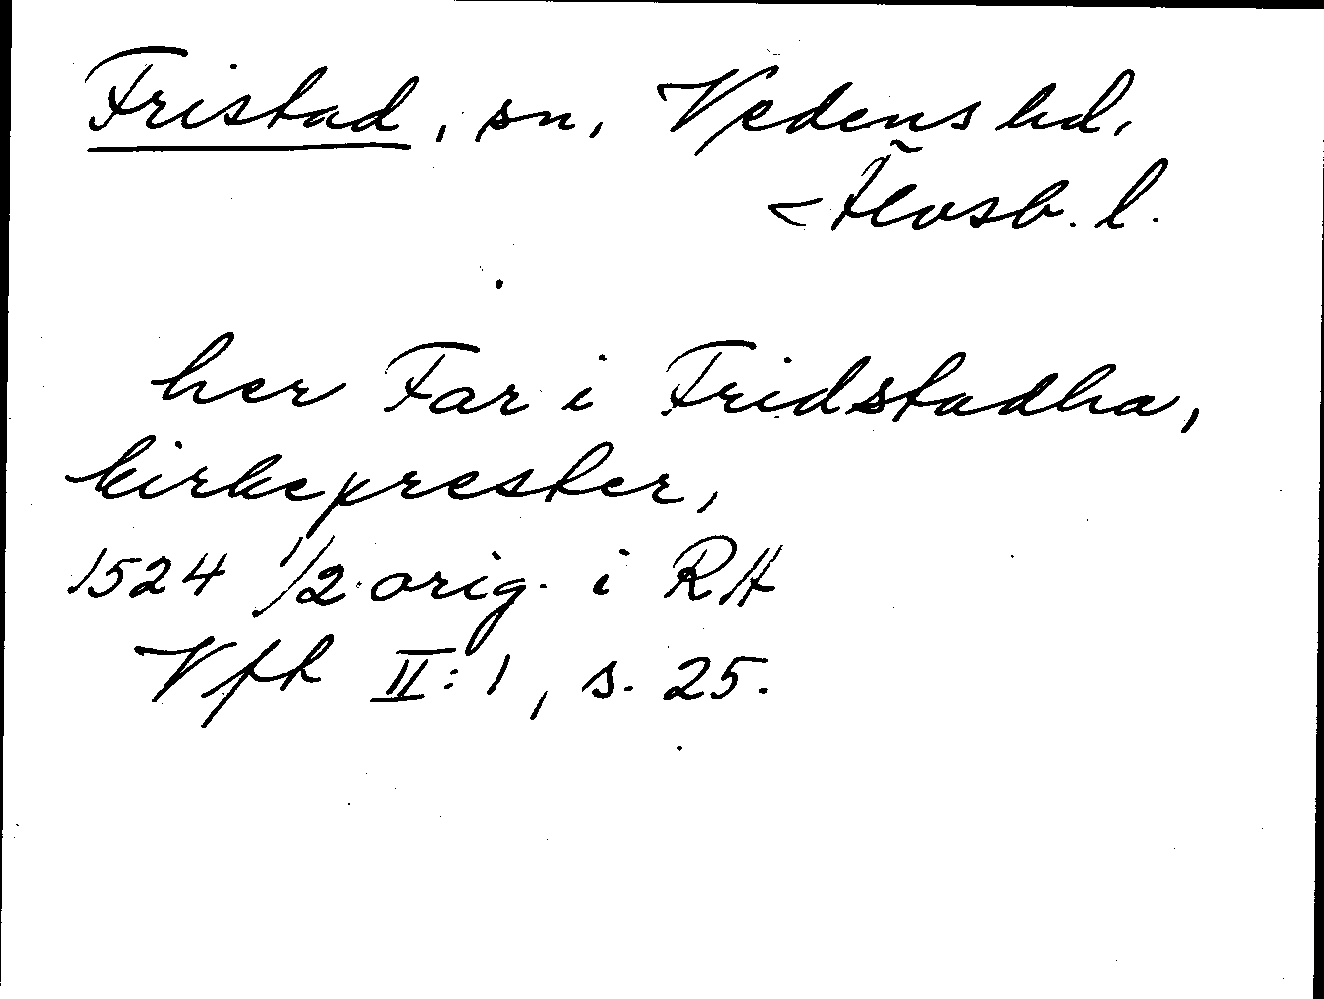 Fristad, sn, Vedens hd,
Älvsb. l.
her Far i Fridstadha,
kirkeprester,
1524 1/2 orig. i RA
Vfh II:1, s. 25.